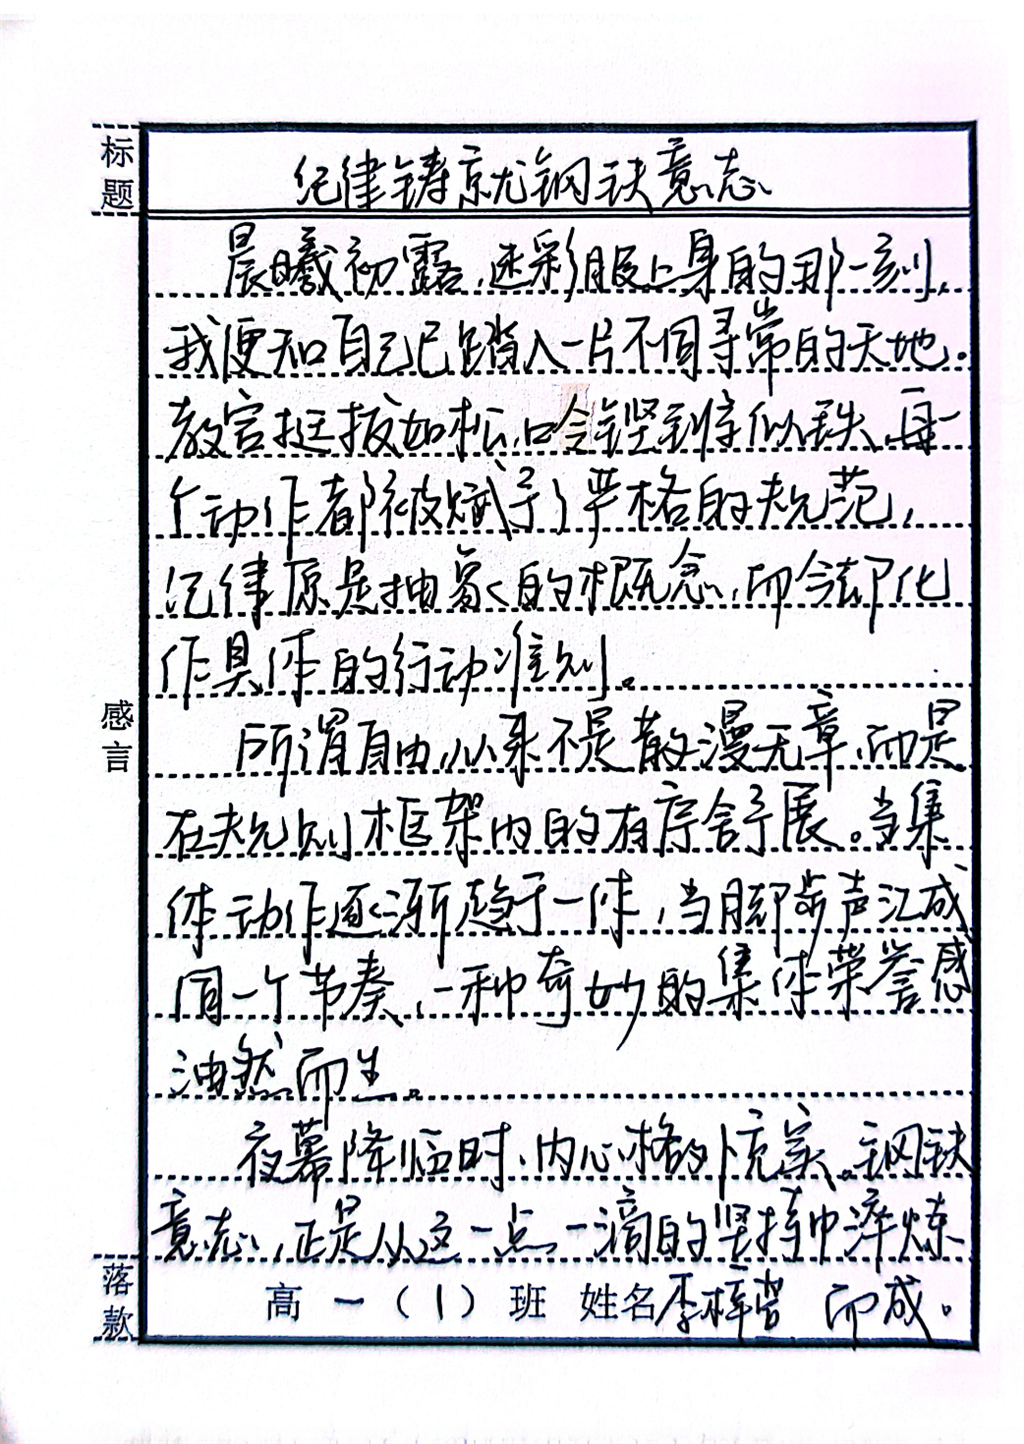 标题
纪律铸就钢铁意志
晨曦初露,迷彩服上身的那一刻,
我便知自己已踏入一片不同寻常的天地。
教官挺拔如松,口令铿锵似铁,每一
个动作都被赋予了严格的规范,
纪律原是抽象的概念,而今却化
作具体的行动准则。
感言
所谓自由,从来不是散漫无章,而是
在规则框架内的有序舒展。当集
体动作逐渐趋于一体,当脚步声汇成
同一个节奏,一种奇妙的集体荣誉感
油然而生。
夜幕降临时,内心格外充实。钢铁
意志,正是从这一点一滴的坚持中淬炼
落款
高一(1)班 姓名李梓 而成。